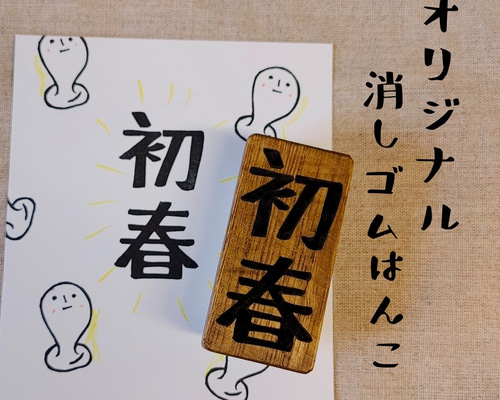 オリジナル
消しゴムはんこ
初春
初春